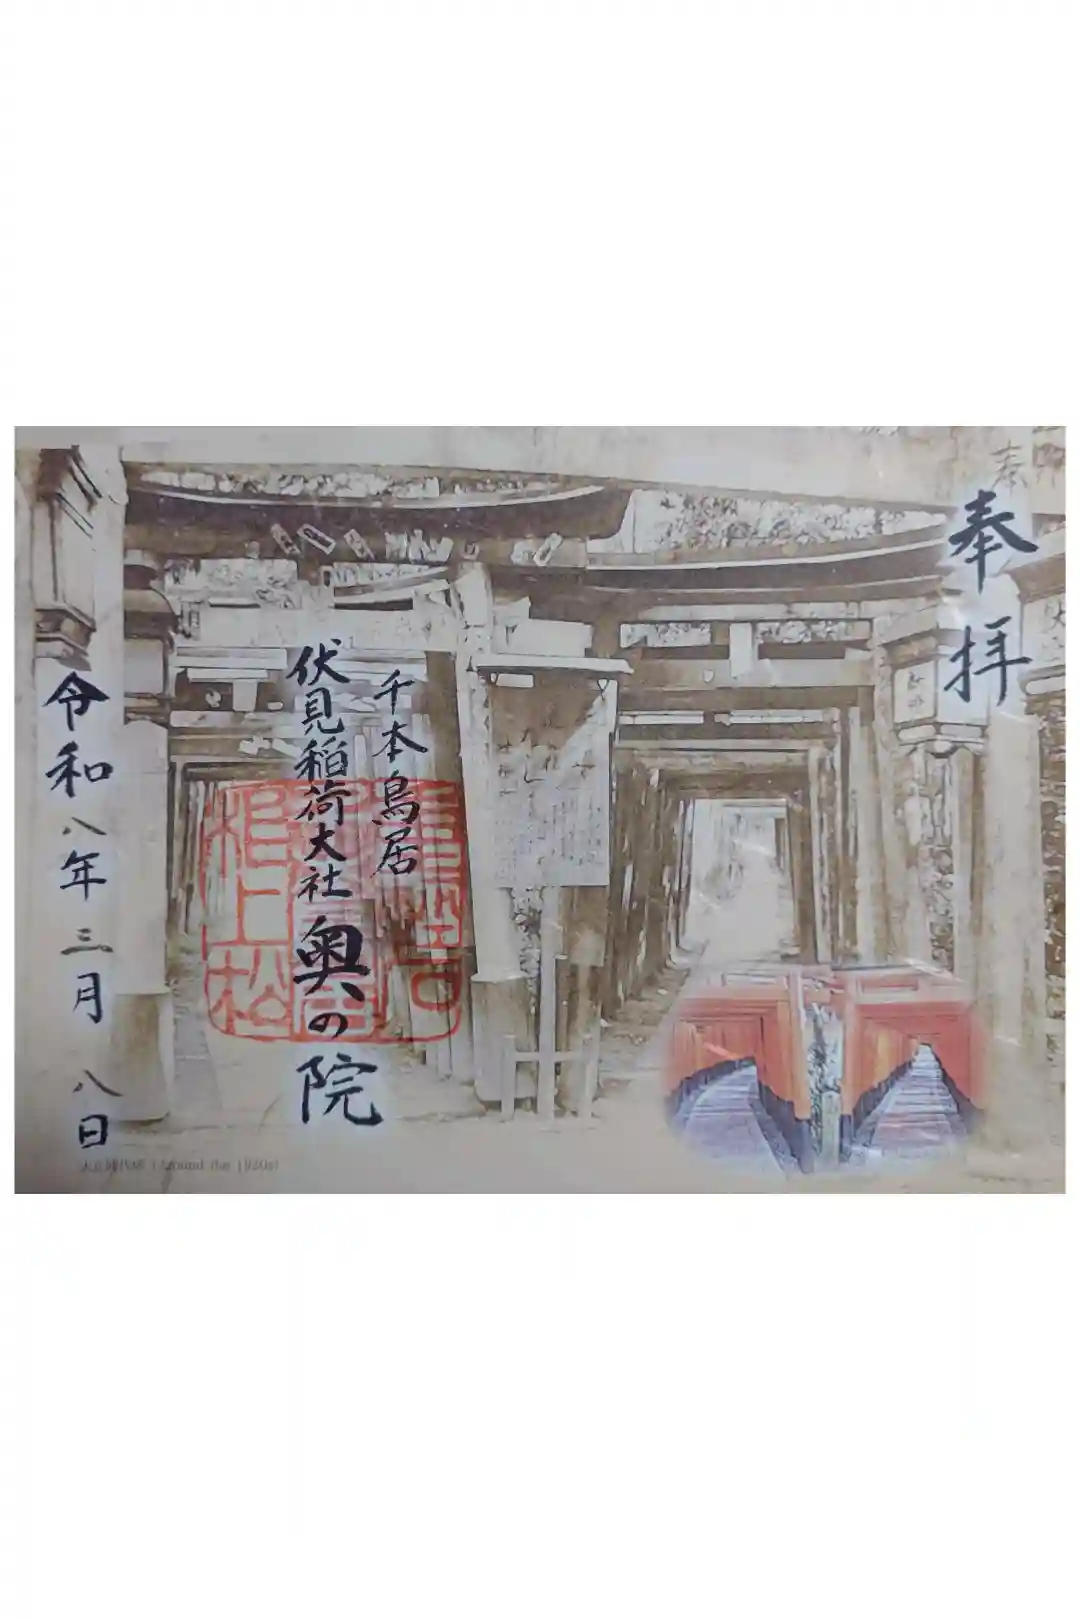 奉拝
千本鳥居
伏見稲荷大社
奥の院
令和八年三月八日
(Around the 1920s)